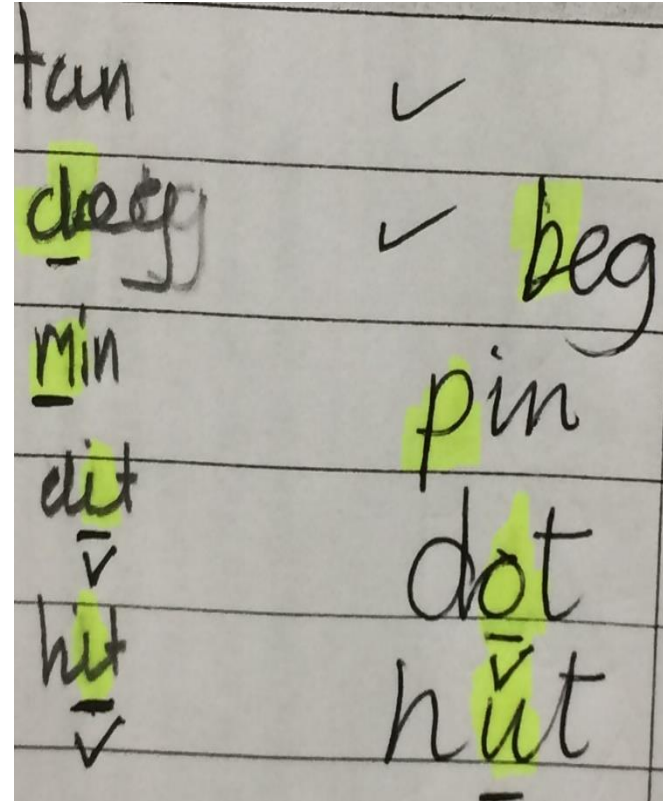 tan ✓
deg ✓ beg
min pin
dit dot
v v
hit hut
v